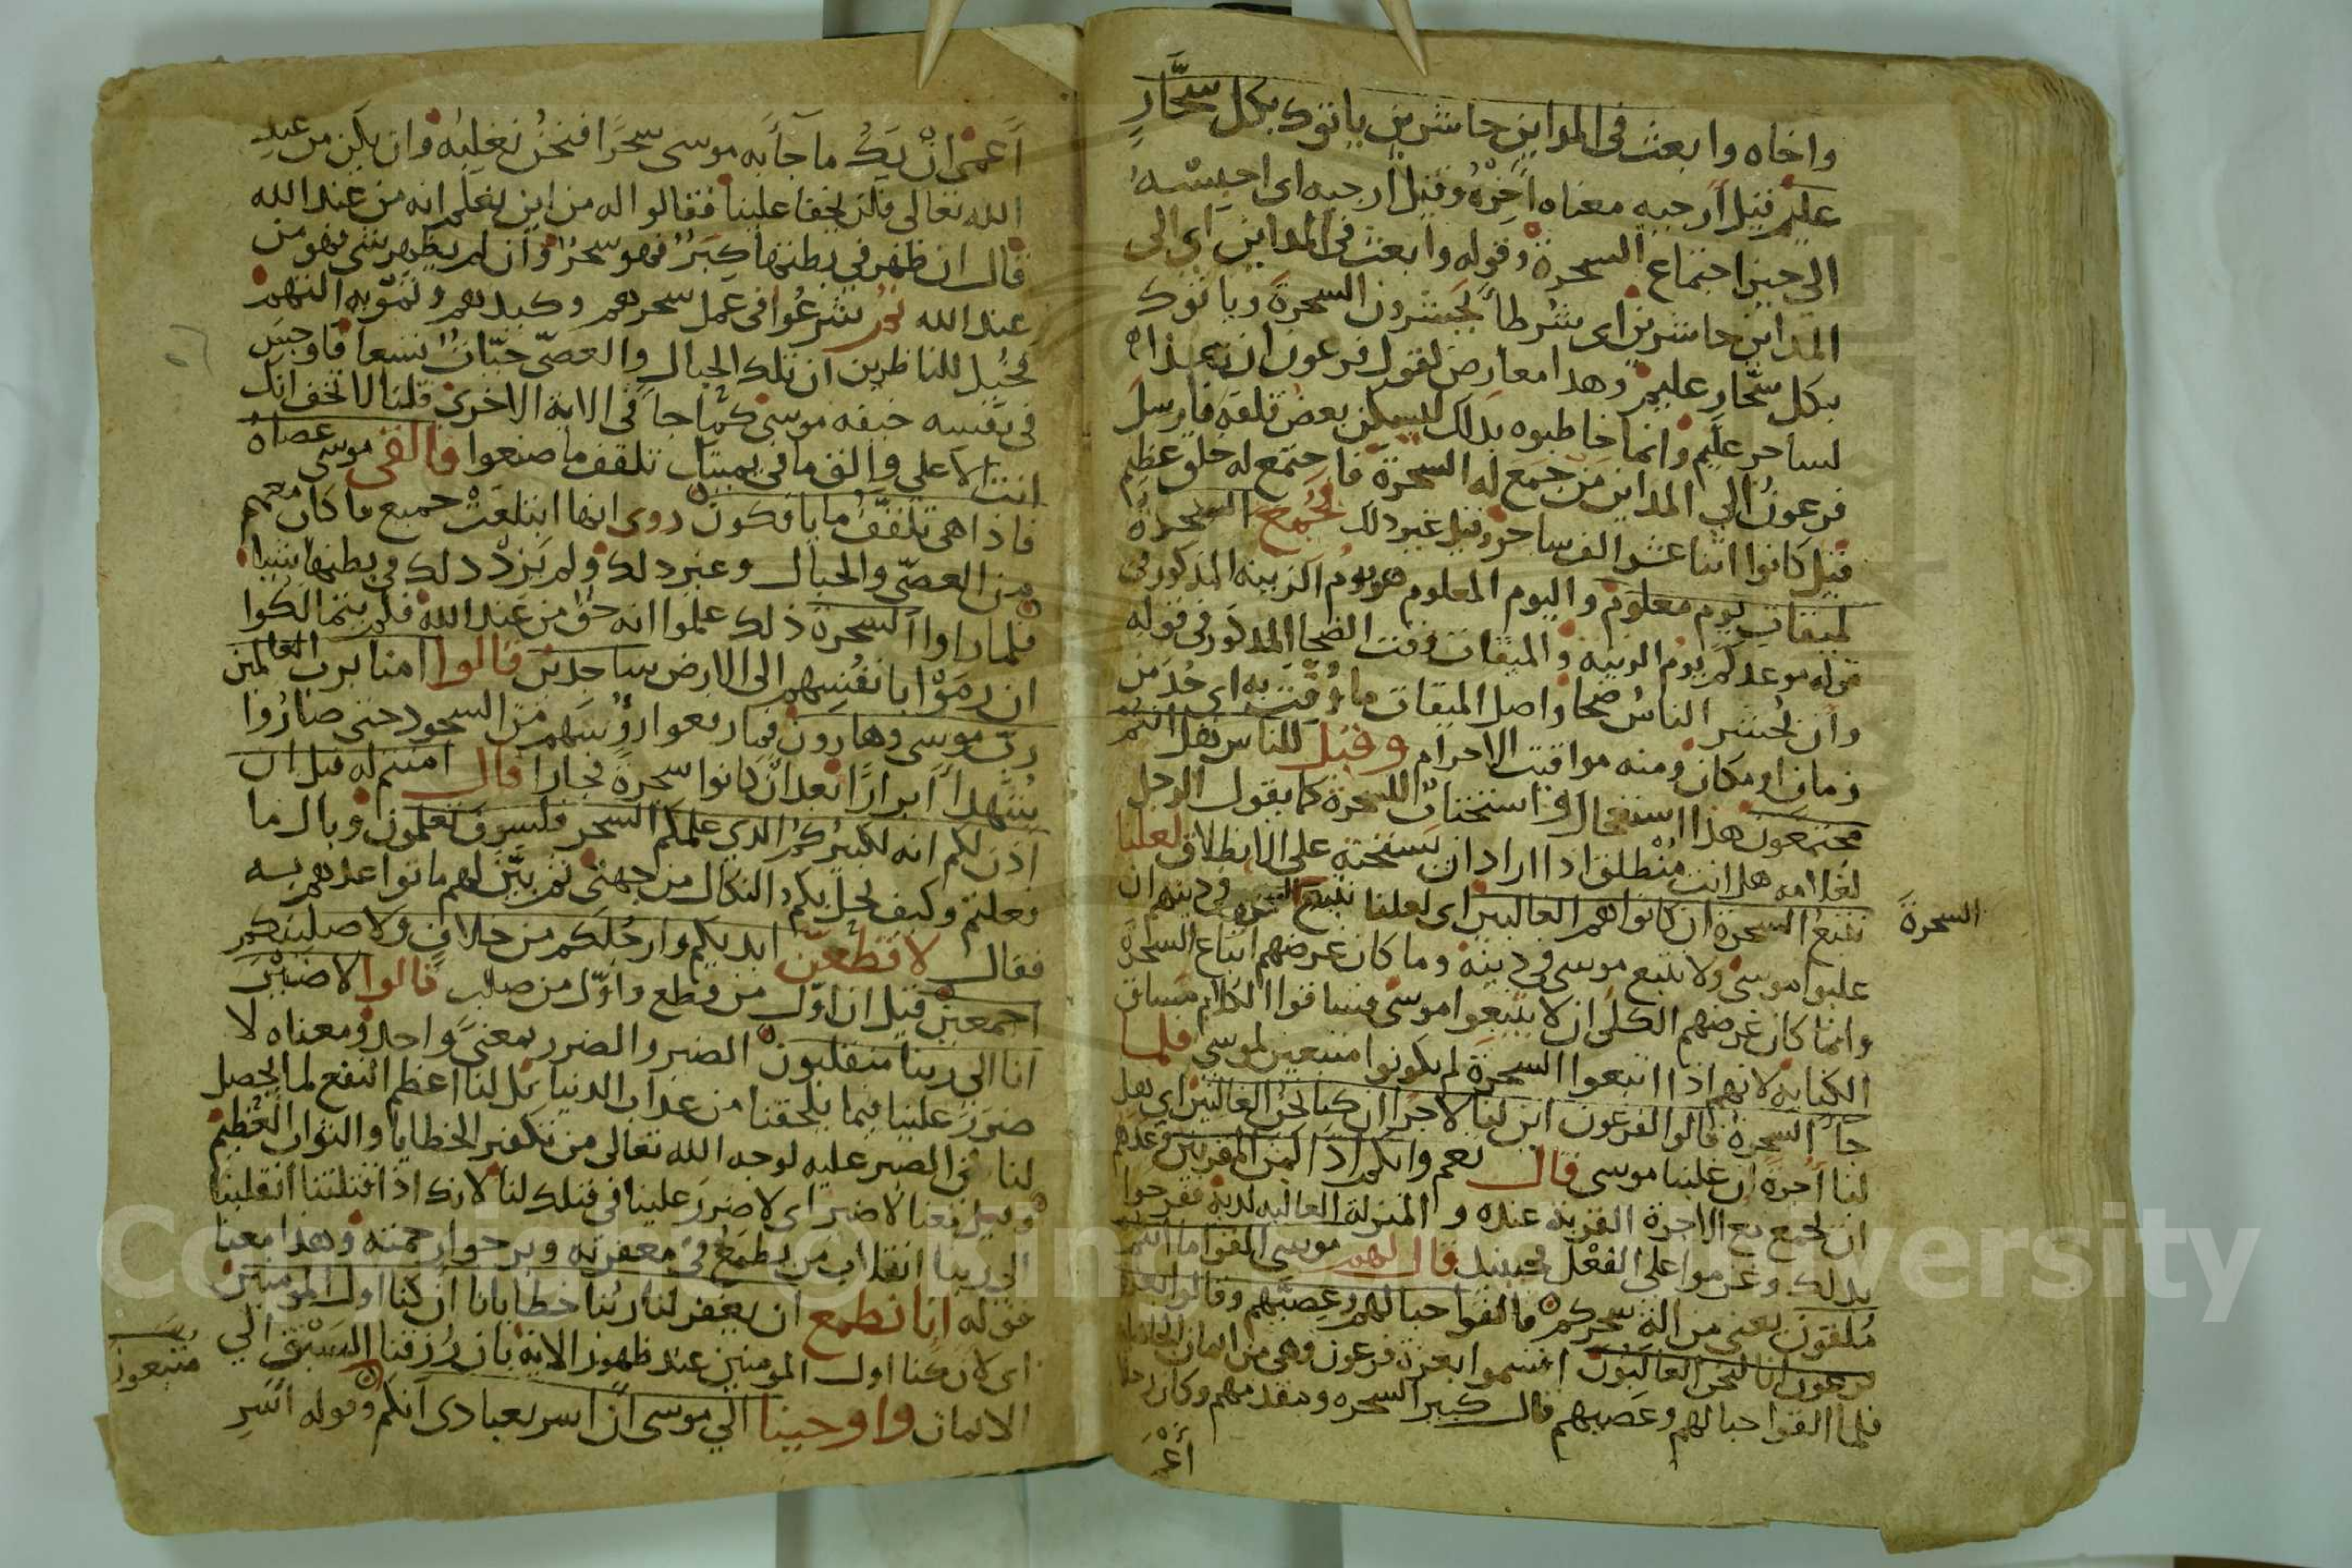 واخاه وابعث في المداين حاشرين ياتوك بكل سحَّارٍ
عليم قيل أرجيه معناه أخِّرْهُ وقيل أرجيه اى احبِسْهُ
الى حين اجتماع السحرة وقوله وابعث في المداين اى الى
المداين حاشرين اى شُرطاً يحشرون السحرة وياتوك
بكل سحّار عليم وهذا معارض لقول فرعون ان هذا
لساحر عليم وانما خاطبوه بذلك ليسكن بعض قلقه فارسل
فرعون الي المداين من جمع له السحرة فاجتمع له خلق عظيم
قيل كانوا اثنا عشر الف ساحر وقيل غير ذلك فجُمع السحرة
لميقات يوم معلوم واليوم المعلوم هو يوم الزينه المذكور في
قوله موعدكم يوم الزينه والميقات وقت الضحا المذكور في قوله
وان يُحشر الناسُ ضحا واصل الميقات ما وُقّت به اى حُدّ من
زمان او مكان ومنه مواقيت الاحرام وقيل للناس هل انتم
مجتمعون هذا استعجال واستحثاث للسحرة كما يقول الرجل
لغلامه هل انت مُنْطلق اذا اراد ان يستحثه على الانطلاق لعلنا
نتبع السحرة ان كانوا هم الغالبين اى لعلنا نتبع السحرة في دينهم ان
السحرة
غلبوا موسى ولا نتبع موسى في دينه وما كان غرضهم اتباع السحرة
وانما كان غرضهم الكلى ان لا يتبعوا موسى فساقوا الكلام مساق
الكنايه لانهم اذا اتبعوا السحرة لم يكونوا متبعين لموسى فلما
جآ السحرة قالوا لفرعون اين لنا لأجرا ان كنا نحن الغالبين اى هل
لنا أجرة ان غلبنا موسى قال نعم وانكم اذا لمن المقربين وعدهم
ان يجمع مع الاجرة القربة عنده و المنزلة العاليه لديه ففرحوا
بذلك وعزموا على الفعل فحينيذ قال لهم موسى القوا ما انتم
مُلقون يعني من الة سحركم فالقوا حبالهم وعصيّهم وقالوا بعزة
فرعون انا لنحن الغالبون اقسموا بعزة فرعون وهى من ايمان الجاهلية
فلما القوا حبالهم وعصيهم قال كبير السحره ومقدمهم وكان رجلا
أعْ
أعمى ان يَكُ ما جآء به موسى سحرًا فنحن نغلبه وان يكن من عند
الله تعالى فلن يخفا علينا فقالوا له من اين يعلم انه من عند الله
قال ان ظهر في بطنها كِبَرٌ فهو سحر وان لم يظهر شى فهو من
عند الله ثم شرعُوا في عمل سحرهم وكيدهم وتمويه التهم
فخُيل للناظرين ان تلك الحبال والعصىّ حيّاتٌ تسعا فاوجس
في نفسه خيفه موسى كما جا في الايه الاخرى قلنا لا تخف انك
انت الاعلى والق ما في يمينك تلقف ما صنعوا فالقى موسى عصاهُ
فاذا هى تلقفُ ما يافكون روى انها ابتلعتْ جميع ما كان معهم
من العصىّ والحبال وغير ذلك ولم يَزدْ ذلك في بطنها شيا
فلما راوا السحرة ذلك علموا انه حق من عند الله فلم يتمالكوا
ان رمَوْا بانفُسِهم الى الارض ساجدين قالوا امنا برب العالمين
ربّ موسى وهارون فما رفعوا رؤسهم من السجود حتى صارُوا
شهدا أبرارًا بعد ان كانوا سحرة فجارا قال امنتم له قبل ان
اذن لكم انه لكبيركمُ الذي علمكم السحر فلسوف تعلمون وبال ما
فعلتم وكيف يحل بكم النكال من جهتى ثم بيّن لهم ما تواعدهم به
فقال لأقطعنّ ايديكم وارجلكم من خلافٍ ولاصلبنكم
اجمعين قيل ان اوّل من قطع واوّل من صلب قالوا لا ضيْرَ
انا الى ربنا منقلبون الضير والضرر بمعنىً واحد ومعناه لا
ضررَ علينا فيما يلحقنا من عذاب الدنيا بل لنا اعظم النفع لما يحصل
لنا في الصبر عليه لوجه الله تعالى من تكفير الخطايا والثواب العظيم
وقيل معنا لا ضير اى لا ضررَ علينا في قتلك لنا لانك اذا قتلتنا انقلبنا
الى ربنا انقلاب من يطمع في مغفرته ويرجوا رحمته وهذا معنا
قوله انا نطمع ان يغفر لنا ربُنا خطايانا ان كنا اول المومنين
اى لان كنا اول المومنين عند ظهور الايه بان رُزقنا السَبْقَ الي
الايمان واوحينا الي موسى ان اسر بعبادى انكم وقوله اسْرِ
متبعون